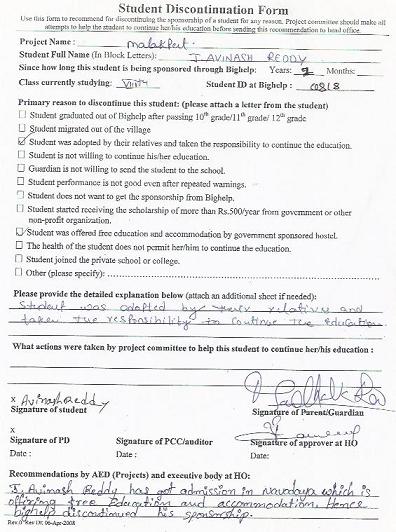 Student Discontinuation Form
Use this form to recommend for discontinuing the sponsorship of a student for any reason. Project committee should make all
attempts to help the student to continue her/his education before sending this recommendation to head office.
Project Name : malakpet.
Student Full Name (In Block Letters): J. AVINASH REDDY
Since how long this student is being sponsored through Bighelp: Years: 2 Months:
Class currently studying: VIIIth Student ID at Bighelp :
Primary reason to discontinue this student: (please attach a letter from the student)
Student graduated out of Bighelp after passing 10th grade/11th grade/ 12th grade
Student migrated out of the village
Student was adopted by their relatives and taken the responsibility to continue the education.
Student is not willing to continue his/her education.
Guardian is not willing to send the student to the school.
Student performance is not good even after repeated warnings.
Student does not want to get the sponsorship from Bighelp.
Student started receiving the scholarship of more than Rs.500/year from government or other
non-profit organization.
Student was offered free education and accommodation by government sponsored hostel.
The health of the student does not permit her/him to continue the education.
Student joined the private school or college.
Other (please specify): ........................................................................
Please provide the detailed explanation below (attach an additional sheet if needed):
Student was adopted by their relative and
taken the responsibility to continue the education
What actions were taken by project committee to help this student to continue her/his education :
x Avinash Reddy
Signature of student Signature of Parent/Guardian
x
Signature of PD Signature of PCC/auditor Signature of approver at HO
Date : Date : Date :
Recommendations by AED (Projects) and executive body at HO:
J. Avinash Reddy has got admission in Navodaya which is
offering free Education and accommodation. Hence
bighelp discontinued his sponsorship.
Rev.0 Rev Dt. 06-Apr-2008